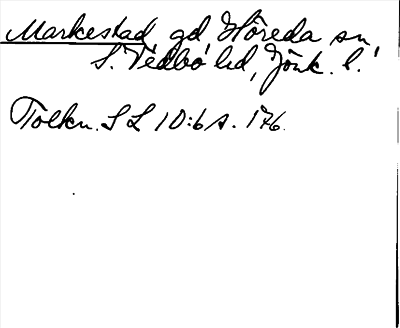 Markestad gd Höreda sn,
S. Vedbo hd, Jönk. l.
Tolkn. SL 10:6 s. 176.